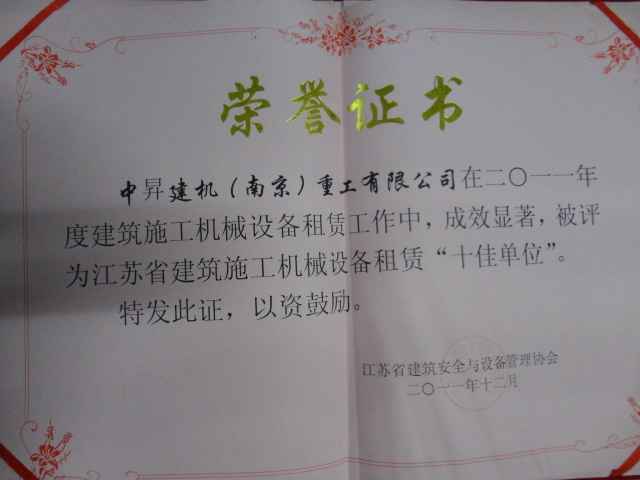 荣誉证书
中昇建机（南京）重工有限公司在二〇一一年
度建筑施工机械设备租赁工作中，成效显著，被评
为江苏省建筑施工机械设备租赁“十佳单位”。
特发此证，以资鼓励。
江苏省建筑安全与设备管理协会
二〇一一年十二月